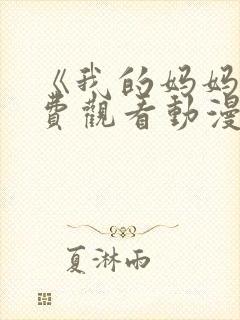 《我的妈妈
費觀看動漫
夏淋雨